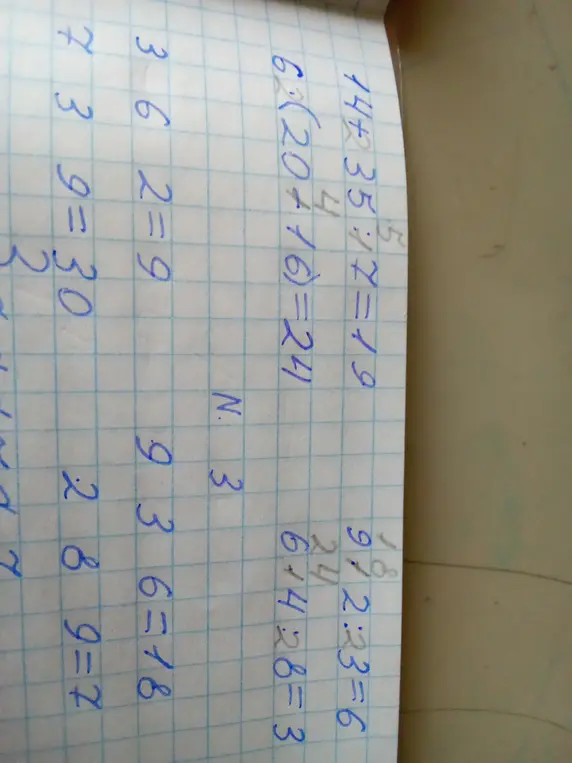 5 18
14+35:7=19 9·2:3=6
4 24
6·(20-16)=24 6·4:8=3
N. 3
3 6 2=9 9 3 6=18
7 3 9=30 2 8 9=7